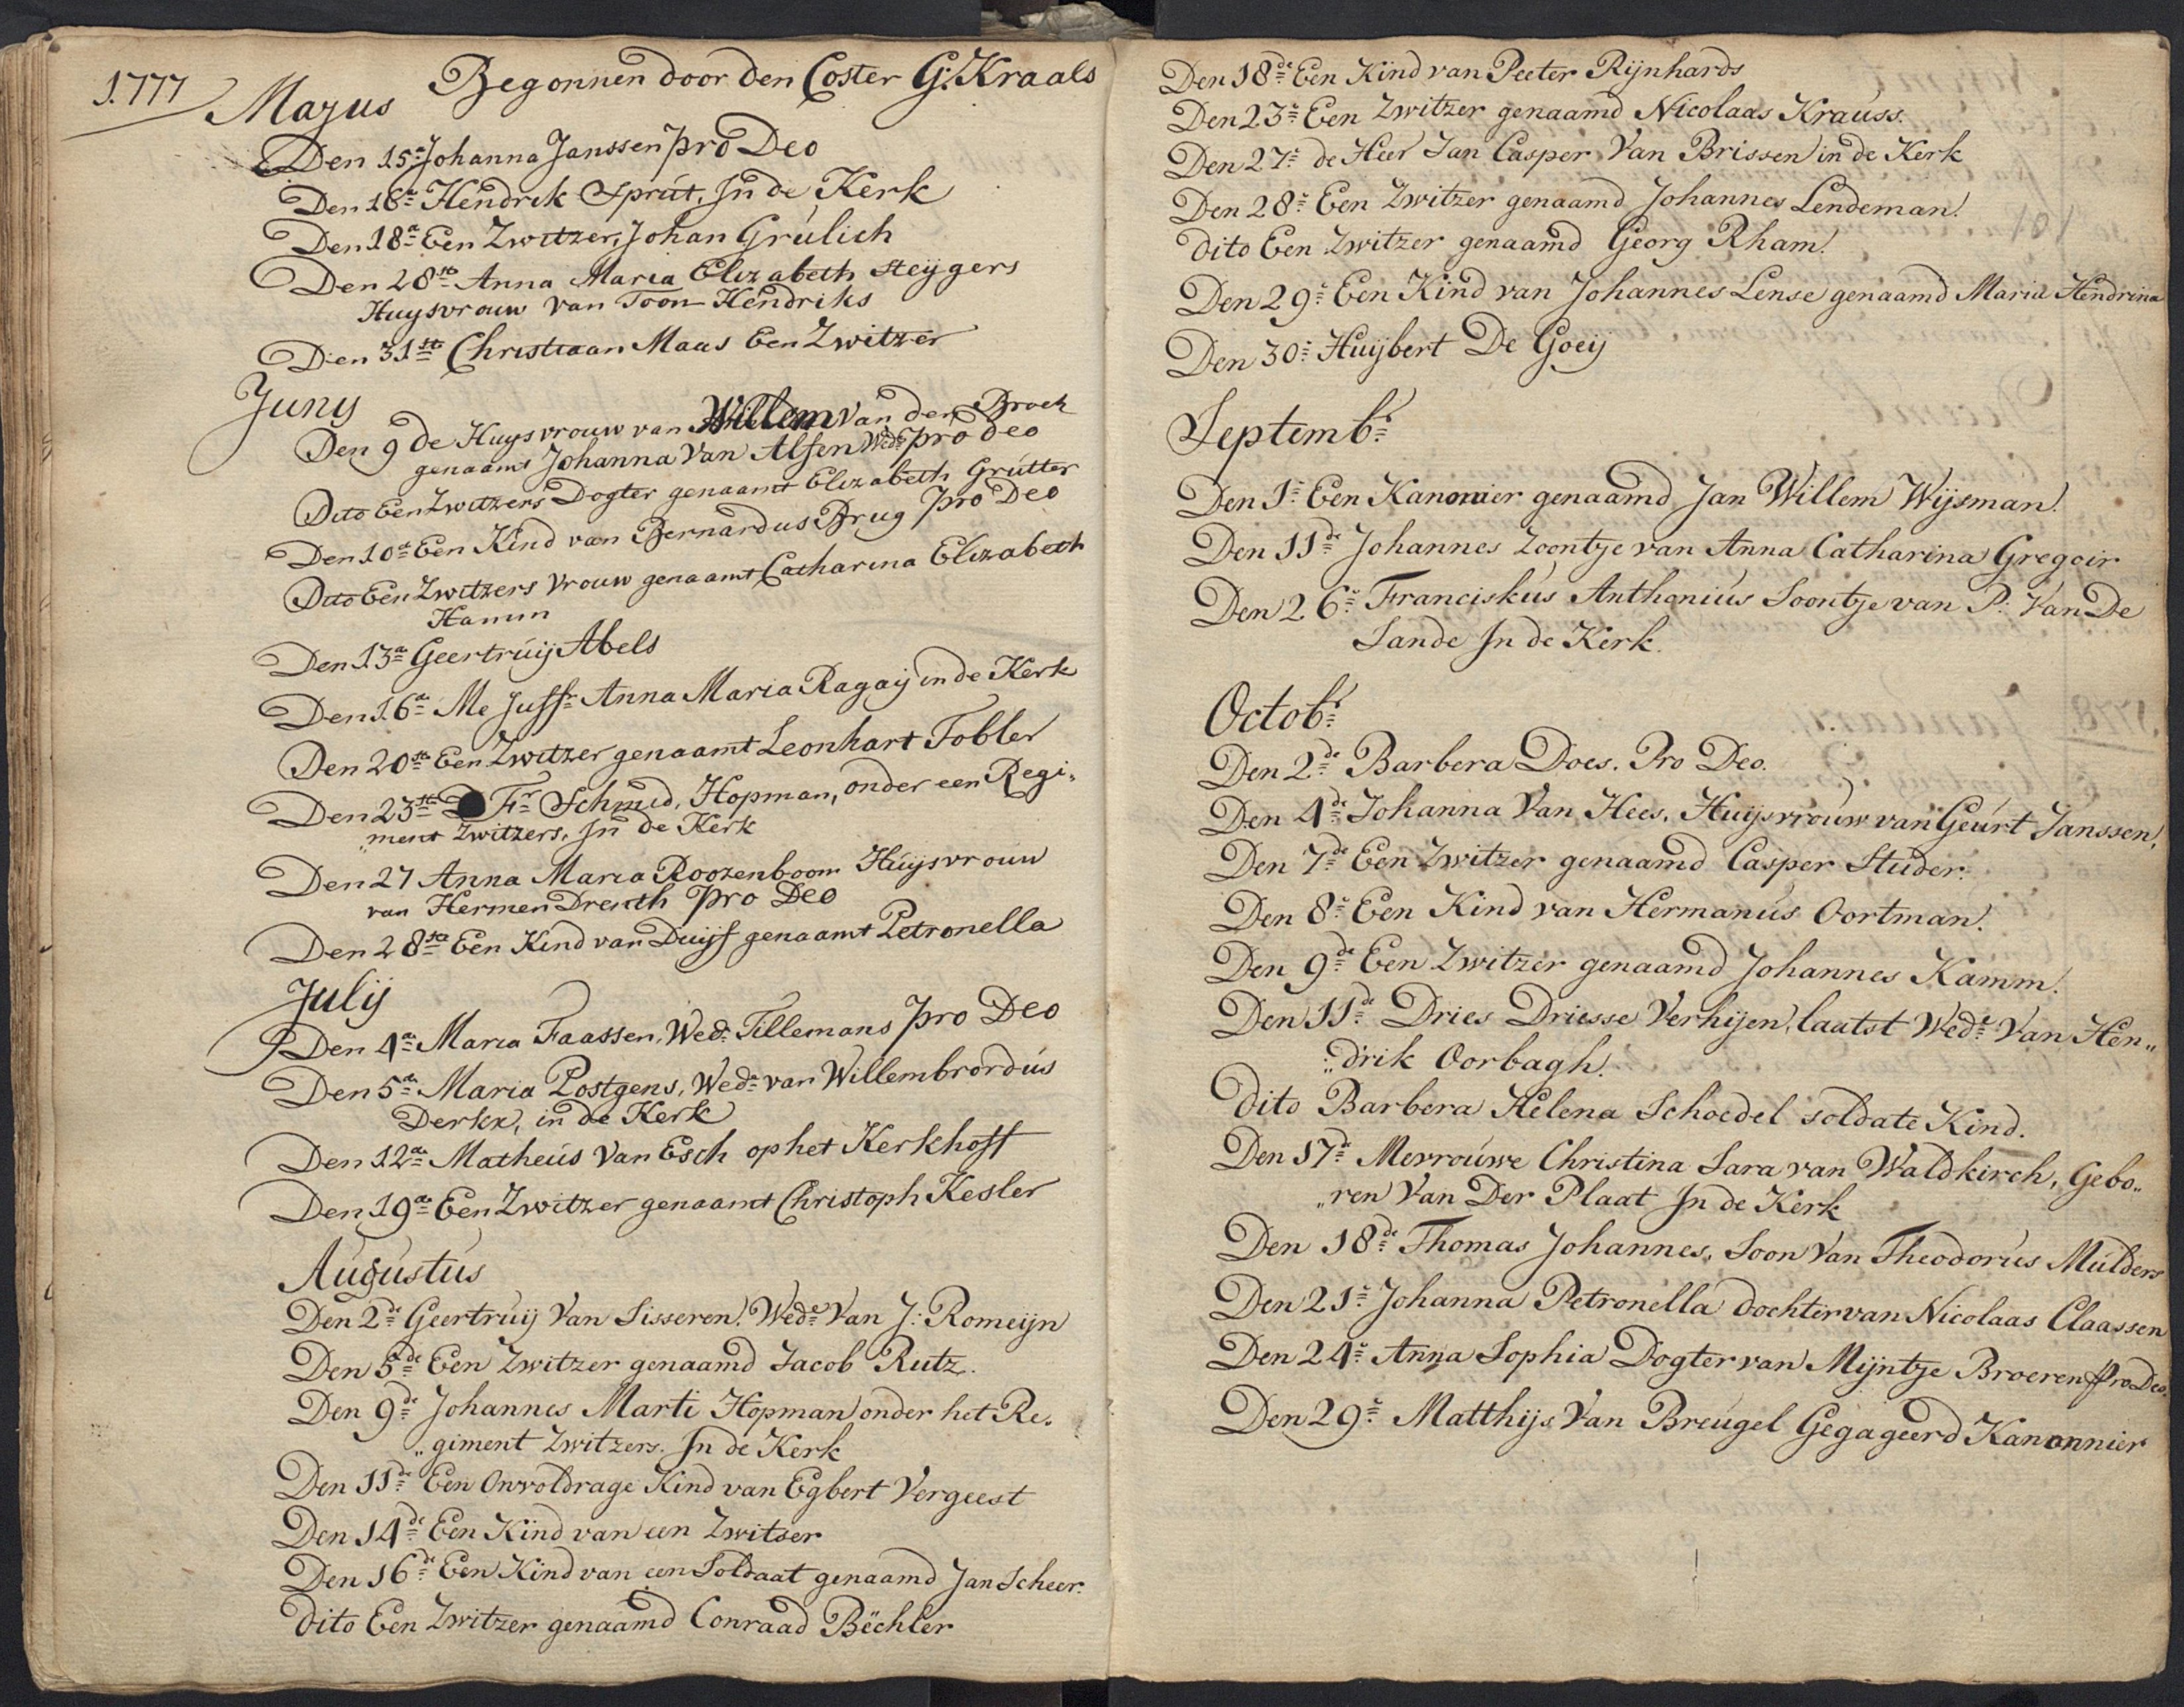 1777
Begonnen door den Coster G: Kraals
Mayus
Den 15de Johanna Janssen pro Deo
Den 18de Hendrik Sprút. In de Kerk
Den 18de Een Zwitzer, Johan Grúlich
Den 28ste Anna Maria Elizabeth Steygers
Huysvrouw van Toon Hendriks
Den 31ste Christiaan Maas Een Zwitzer
Juny
Den 9 de Huysvrouw van Willem van den Broek
genaamt Johanna Van Alfen Wede pro deo
Dito Een Zwitzers Dogter genaamt Elizabeth Grútter
Den 10de Een Kind van Bernardus Brug pro Deo
Dito Een Zwitzers vrouw genaamt Catharina Elizabeth
Hamm
Den 13de Geertrúij Abels
Den 16de Me Juffr Anna Maria Ragaij in de Kerk
Den 20ste Een Zwitzer genaamt Leonhart Tobler
Den 23ste Fr Schmid, Hopman, onder een Regi„
„ment Zwitzers, In de Kerk
Den 27 Anna Maria Roozenboom Húijsvrouw
van Hermen Drenth pro Deo
Den 28ste Een Kind van Duijf genaamt Petronella
Julij
Den 4de Maria Faassen, Wede Tillemans pro Deo
Den 5de Maria Postgens, Wede van Willembrordús
Derkx, in de Kerk
Den 12de Matheús Van Esch op het Kerkhoff
Den 19de Een Zwitzer genaamt Christoph Kesler
Aúgústús
Den 2de Geertrúij Van Sisseren, Wede Van J: Romeijn
Den 5de Een Zwitzer genaamd Jacob Rutz.
Den 9de Johannes Marti Hopman onder het Re„
„giment Zwitzers. In de Kerk
Den 11de Een Onvoldrage Kind van Egbert Vergeest
Den 14de Een Kind van een Zwitser
Den 16de Een Kind van een Soldaat genaamd Jan Scheer.
Dito Een Zwitzer genaamd Conraad Bëchler
Den 18de Een Kind van Peeter Rijnhards
Den 23e Een Zwitzer genaamd Nicolaas Kraúss.
Den 27e de Heer Jan Casper Van Brissen in de Kerk
Den 28e Een Zwitzer genaamd Johannes Lendeman.
Dito Een Zwitzer genaamd Georg Rham.
Den 29e Een Kind van Johannes Lense genaamd Maria Hendrina
Den 30e Huijbert De Goeij
Septembr
Den 1e Een Kanonier genaamd Jan Willem Wijsman.
Den 11de Johannes Zoontje van Anna Catharina Gregoir
Den 26e Franciskús Anthoniús Soontje van P: Van De
Sande In de Kerk.
Octobr
Den 2de Barbera Does. Pro Deo.
Den 4de Johanna Van Hees, Huijsvroúw van Geúrt Janssen,
Den 7de Een Zwitzer genaamd Casper Stúder.
Den 8e Een Kind van Hermanús Oortman.
Den 9de Een Zwitzer genaamd Johannes Kamm.
Den 11de Dries Driesse Verhijen, laatst Wede Van Hen„
„drik Oorbagh.
Dito Barbera Helena Schoedel soldate Kind.
Den 17de Mevroúwe Christina Sara van Waldkirch, Gebo„
„ren Van Der Plaat In de Kerk
Den 18de Thomas Johannes, Soon Van Theodorús Múlders
Den 21e Johanna Petronella dochter van Nicolaas Claassen
Den 24e Anna Sophia Dogter van Mijntje Broeren Pro Deo.
Den 29e Matthijs Van Breúgel Gegageerd Kanonnier